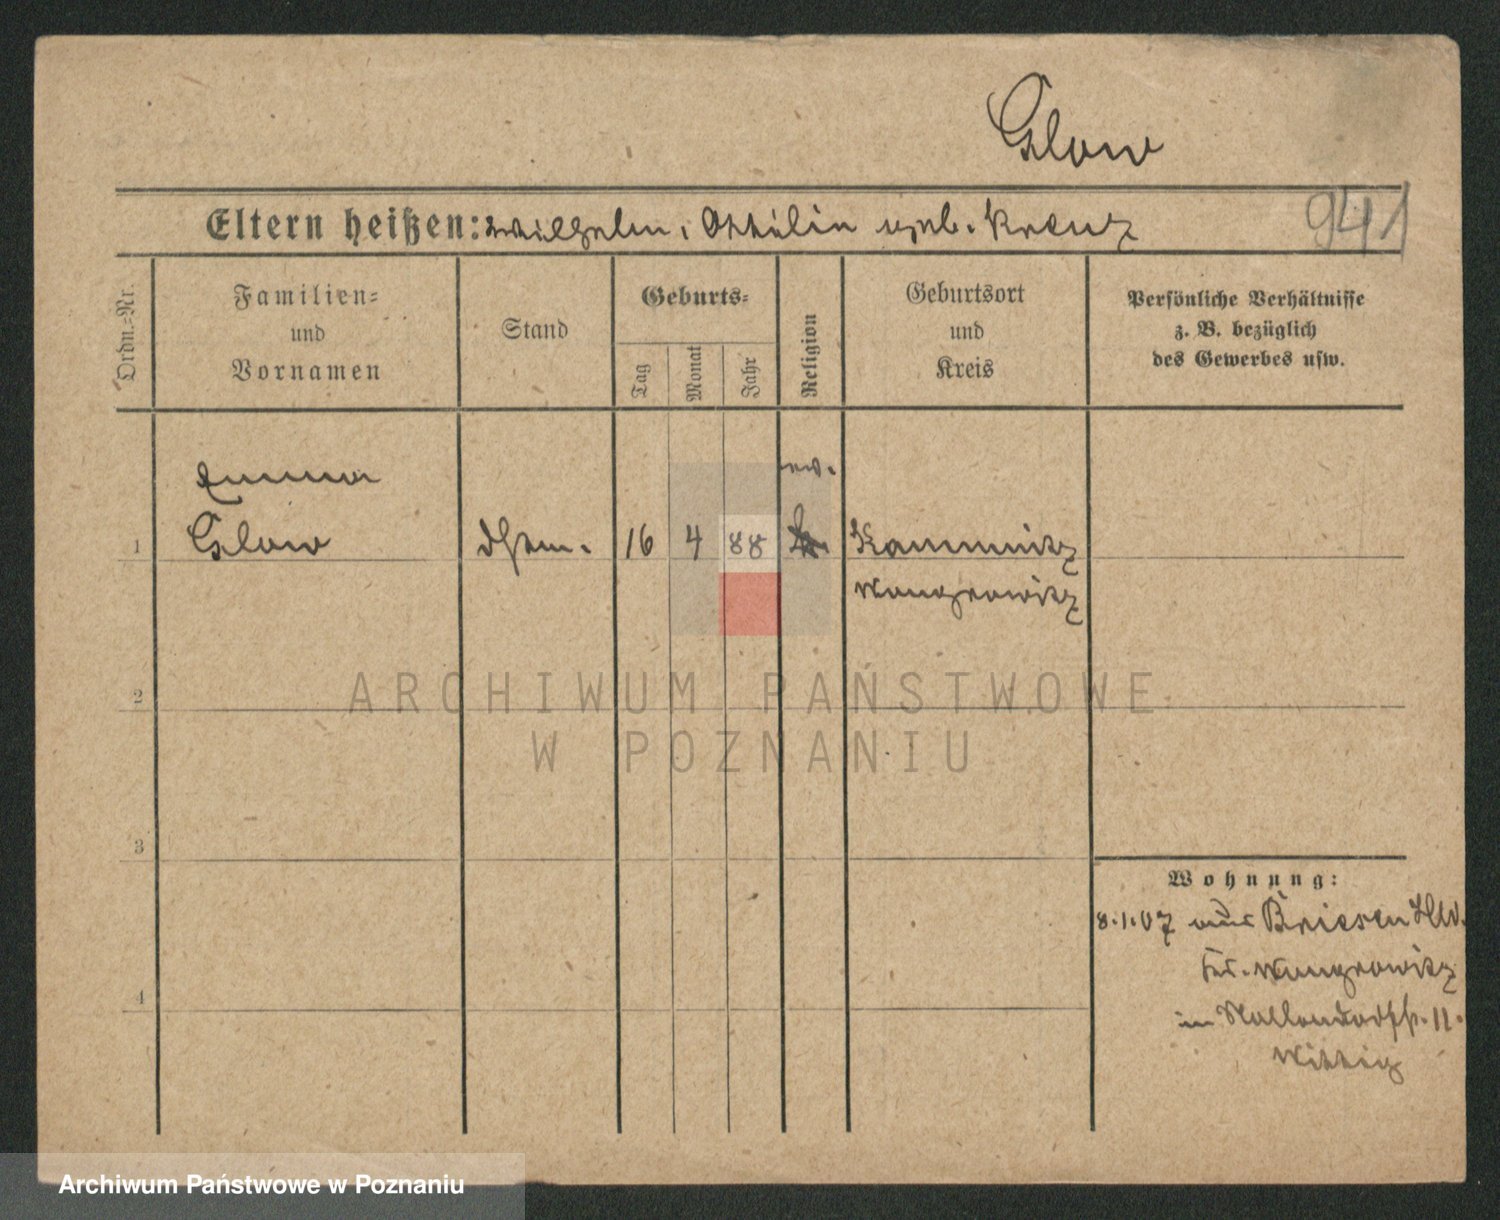 Glow
Eltern heißen: Wilhelm, Ottilie geb. Kreutz
941
Ordn.-Nr.
Familien-
und
Vornamen
Stand
Geburts-
Tag
Monat
Jahr
Religion
Geburtsort
und
Kreis
Persönliche Verhältnisse
z. B. bezüglich
des Gewerbes usw.
Emma
ev.
1 Glow 16 4 88
Wongrowitz
2
3
4
Wohnung:
8.1.07 aus Briesen
Wongrowitz
in 11.
Wittig
ARCHIWUM PAŃSTWOWE
W POZNANIU
Archiwum Państwowe w Poznaniu